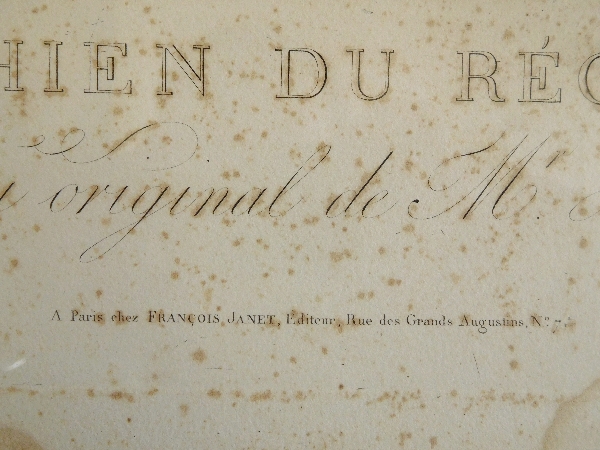 HIEN DU RÉG
original de Mr.
A Paris chez FRANÇOIS JANET, Editeur, Rue des Grands Augustins, No. 7.